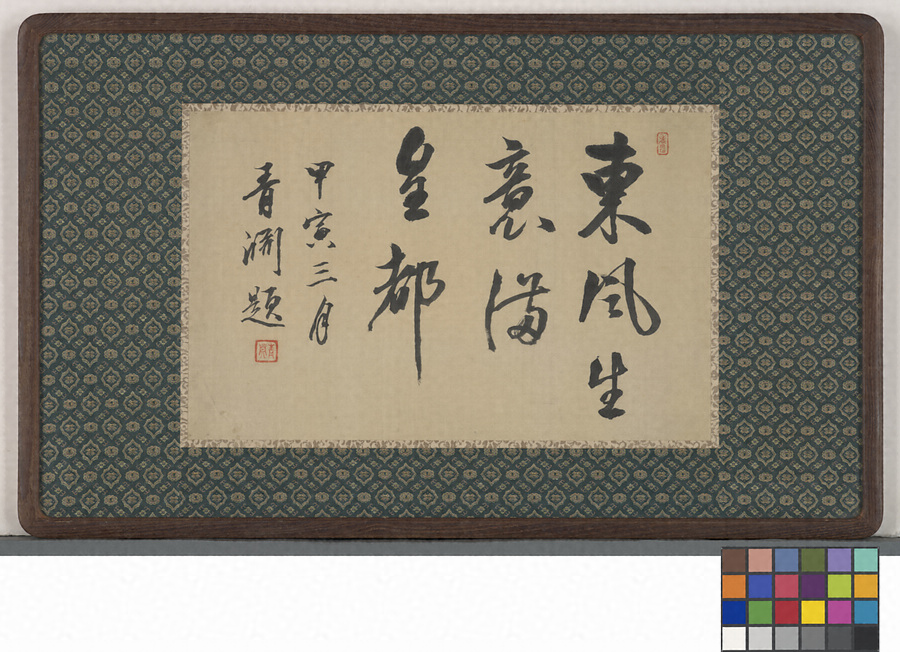 東風生
意滿
皇都
甲寅三月
青淵題